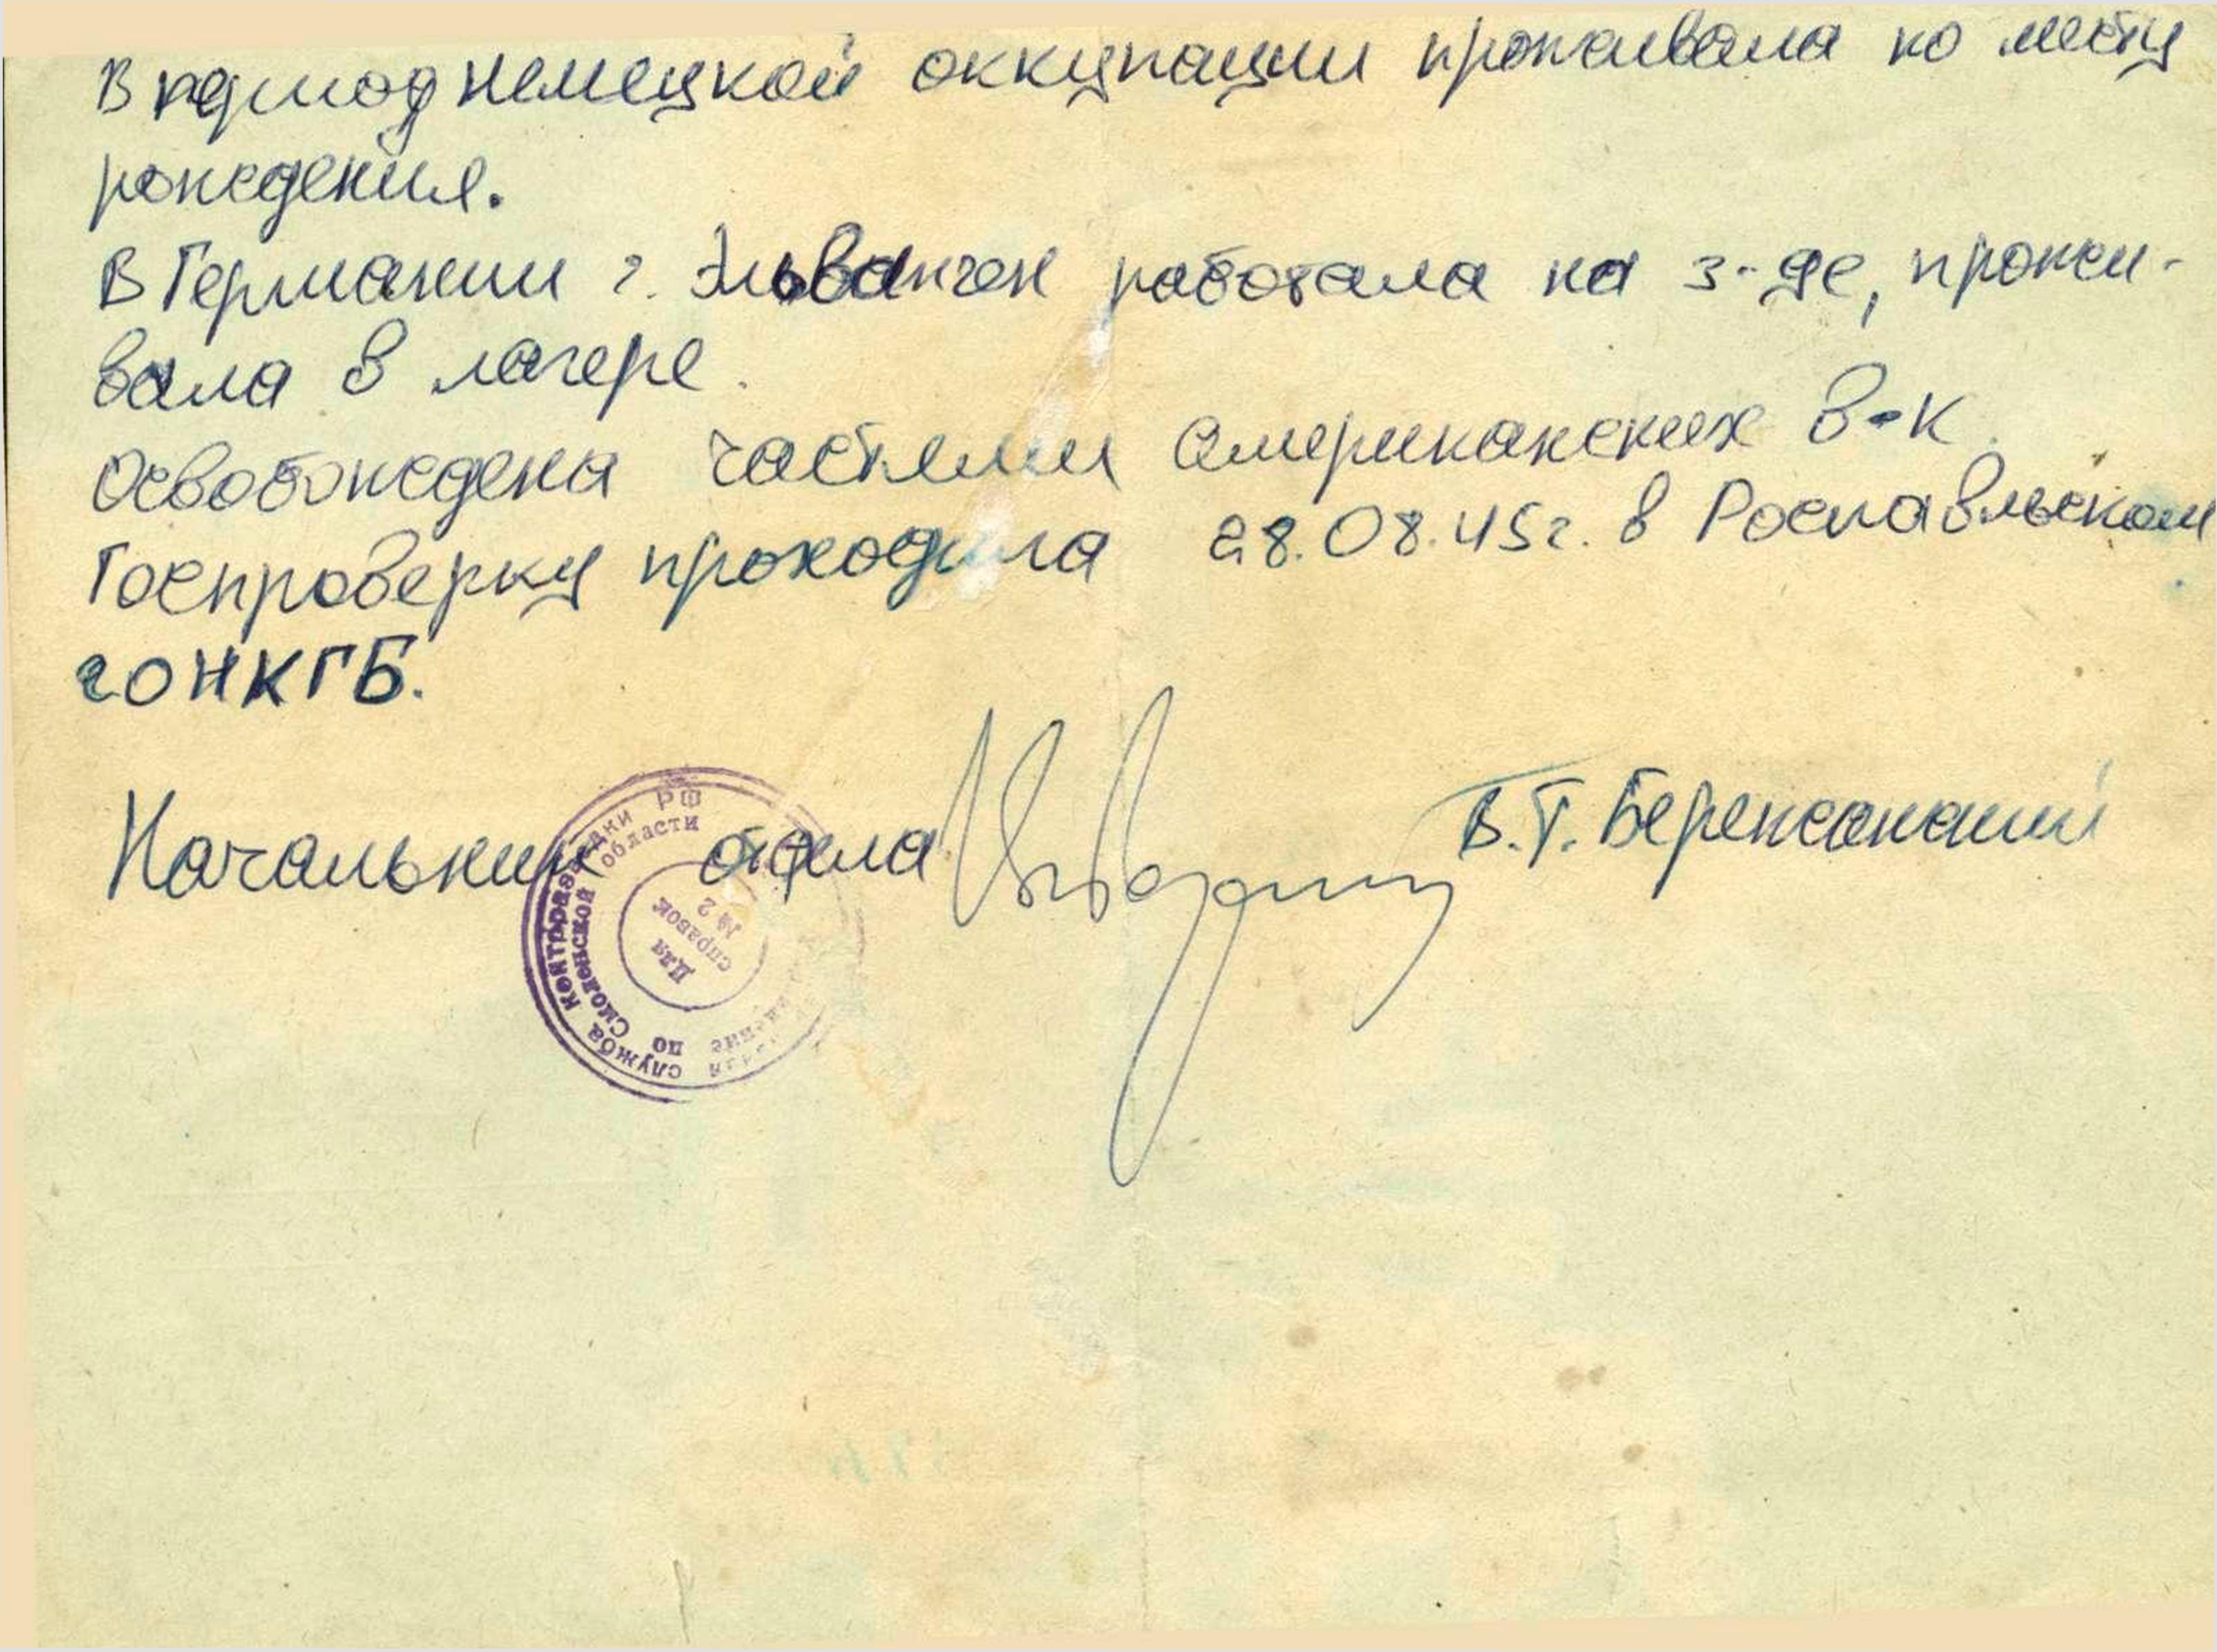 В период немецкой оккупации проживала по месту
рождения.
В Германии г. Эльванген работала на з-де, прожи-
вала в лагере.
Освобождена частями американских в-к.
Госпроверку проходила 28.08.45г. в Рославльском
гоНКГБ.
Начальник отдела
В.Т. Бережанский
служба контрразведки РФ
по Смоленской области
Для
справок
№ 2